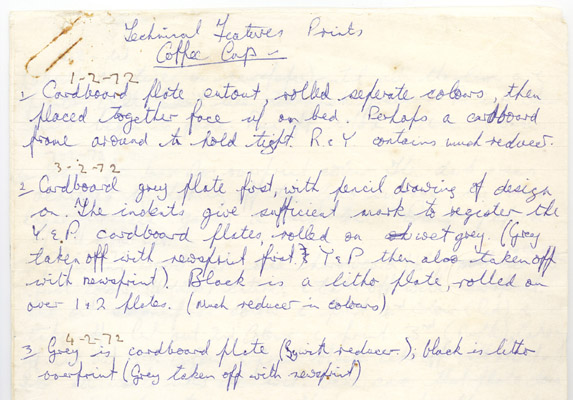 Technical Features Prints
Coffee Cup -
1-2-72
1 Cardboard plate cutout, rolled seperate colours, then
placed together face up on bed. Perhaps a cardboard
frame around to hold tight. R & Y contains much reducer.
3-2-72
2 Cardboard grey plate first, with pencil drawing of design
on. The give sufficient mark to register the
Y. & P. cardboard plates, rolled on wet grey (Grey
taken off with newsprint first & Y & P then also taken off
with newsprint). Black is a litho plate, rolled on
over 1 & 2 plates. (Much reducer in colours)
4-2-72
3 Grey is cardboard plate (with reducer.), black is litho
overprint (Grey taken off with newsprint)